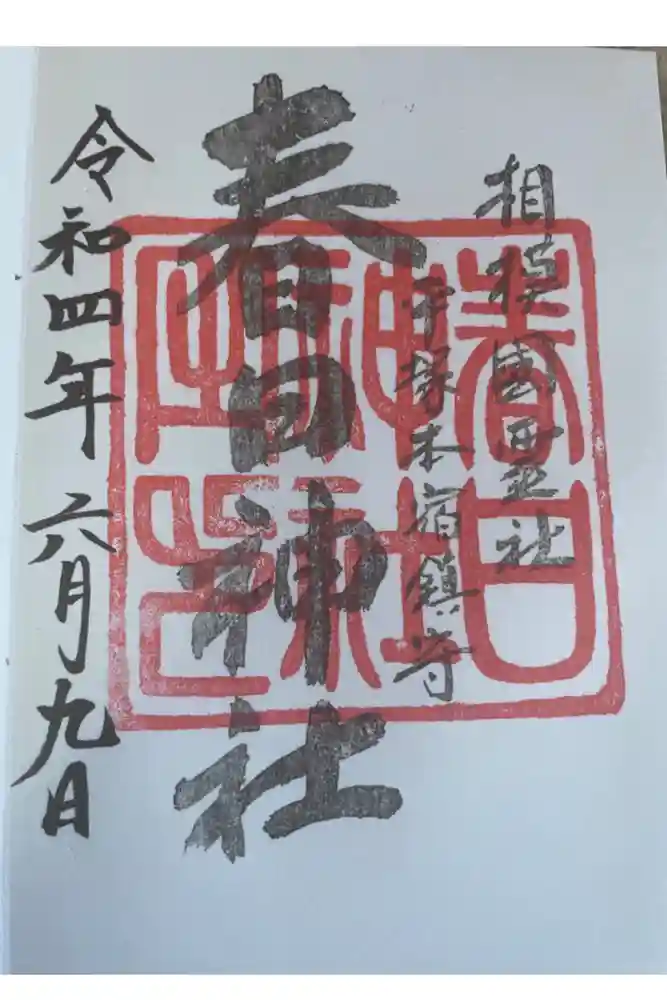 相模國霊社
平塚本宿鎮守
春日神社
令和四年六月九日
春日
神社
之印